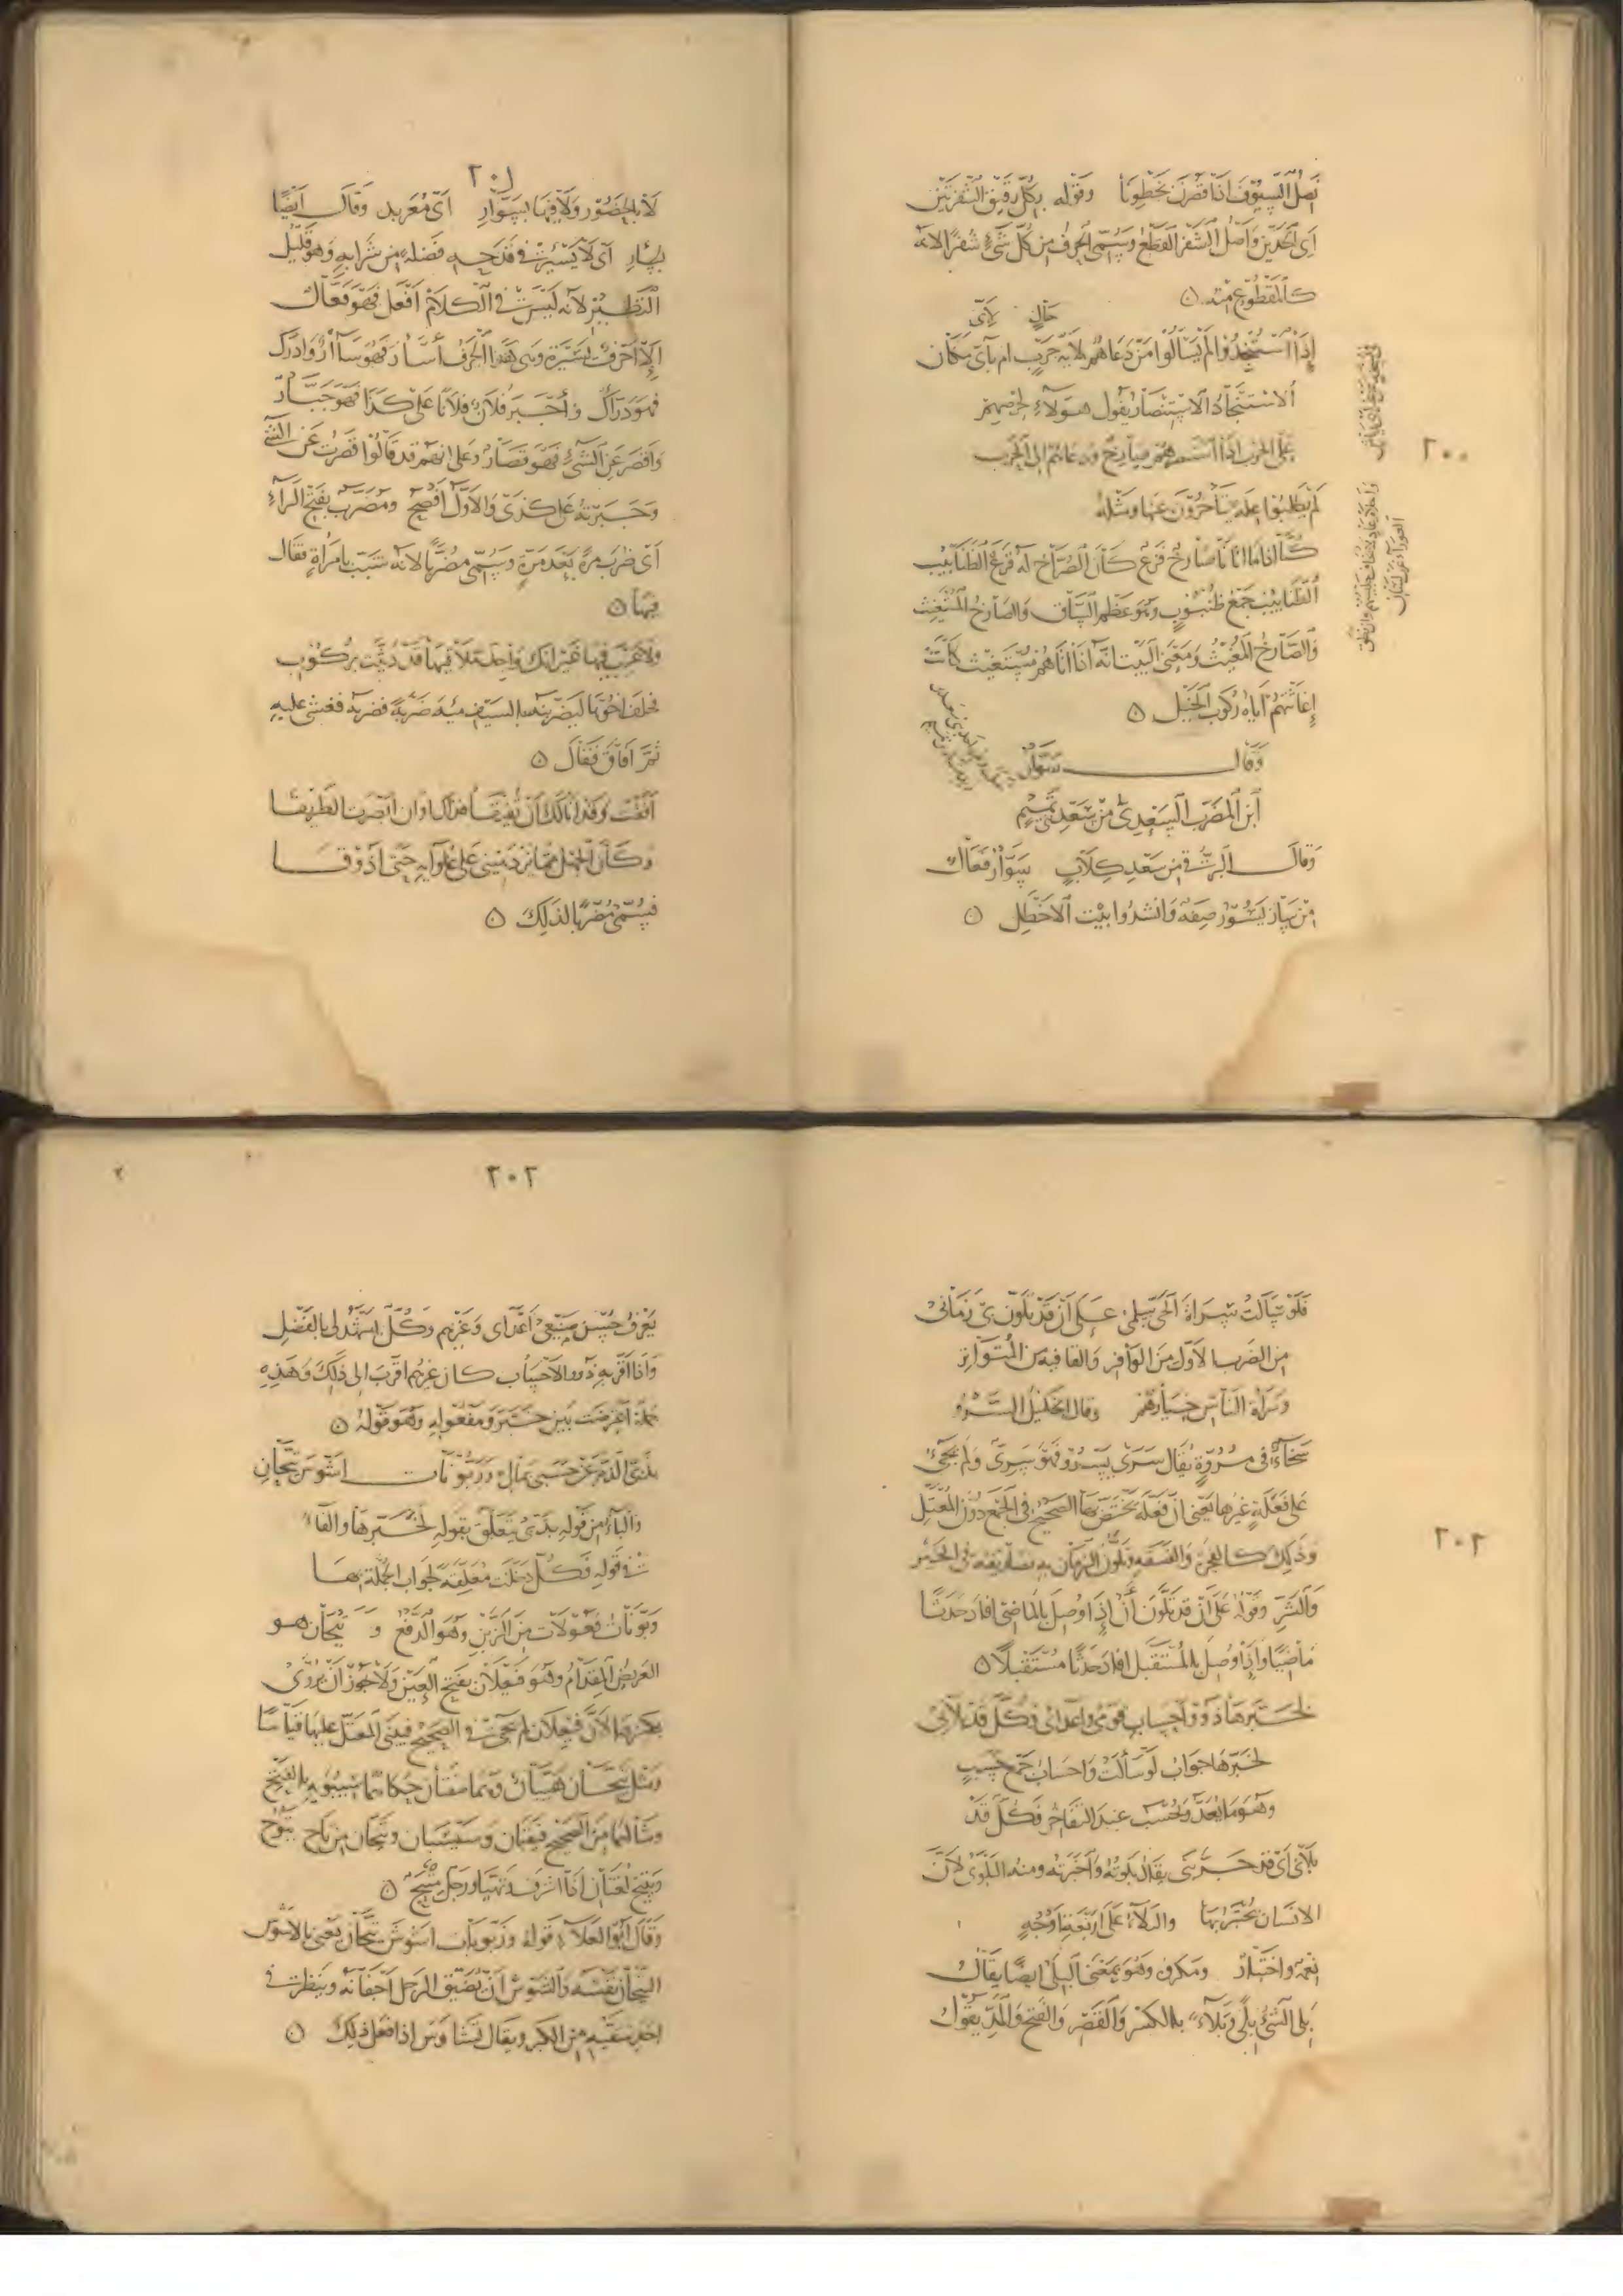 ٢٠٠
نصل السيوف اذا قصرن بخطونا وقوله بكل رقيق الشفرتين
اى الحدين واصل الشفر القطع وسمى الحرف من كل شىء شفرا لانه
كالمقطوع منه ۞
حال لاىّ
إذا استنجدوا لم يسألوا من دعاهم لاية حرب ام باى مكان
الاستنجاد الاستنصار يقول هولاء لحرصهم
على الحرب اذا استنصرهم صارخ ودعاهم الى الحرب
لم يطلبوا علة يتأخرون عنها ومثله
كنا اذا ما اتانا صارخ فزع كان الصراخ له قرع الظنابيب
الظنابيب جمع ظنبوب وهو عظم الساق والصارخ المستغيث
والصارخ المغيث ومعنى البيت انه اذا اتاهم مستغيث كانت
إغاثتهم اياه ركوب الخيل ۞
وقال سوار
ابن المضرب السعدى من سعد تميم
وقال البرقى من سعد كلاب سوار فعال
من سار يسور صفة وانشدوا بيت الاخطل ۞
٢٠١
لا بالحصور ولا فيها بسوار اى معربد وقال ايضا
بسآر اى لا يسئر فى قدحه فضلة من شرابه وهو قليل
النظير لانه ليس فى الكلام افعل فهو فعال
إلا احرف يسيرة وهى هذا الحرف أسأر فهو سآر وادرك
فهو دراك وأجبر فلان فلانا على كذا فهو جبار
واقصر عن الشىء فهو قصار وعلى انهم قد قالوا قصرت عن الشىء
وجبرته على كذى والاول افصح ومضرب بفتح الراء
اى ضرب مرة بعد مرة وسمى مضربا لانه شبب بامراة فقال
فيها ۞
ولا عيب فيها غير انك واجد ملاقيها قد ديثت بركوب
فحلف اخوها ليضربنه بالسيف مئة ضربة فضربه فغشى عليه
ثم افاق فقال ۞
افقت وقد انى لك ان تفيقا فذاك اوان ابصرت الطريقا
وكان الجهل مما يزدهينى على غلوايه حتى اذوقا
فسمى مضربا لذلك ۞
٢٠٢
فلو سالت سراة الحى سلمى على ان قد تلون بى زمانى
من الضرب الاول من الوافر والقافية من المتواتر
وسراة الناس خيارهم وقال الخليل السرو
سخاء فى مروة يقال سرى يسرو فهو سرى ولم يجئ
على فعلة غيرها يعنى ان فعلة يختص بها الصحيح فى الجمع دون المعتل
وذلك كالفجرة والفسقة وتلون الزمان به تصرفه فى الخير
والشر وقوله على ان قد تلون أن إذا وصل بالماضى افاد حدثا
ماضيا واذا وصل بالمستقبل افاد حدثا مستقبلا ۞
لخبرها ذوو احساب قومى واعدائى فكل قد بلانى
لخبرها جواب لو سألت واحساب جمع حسب
وهو ما يعد ويحسب عند التفاخر فكل قد
بلانى اى قد جربنى يقال بلوته واختبرته ومنه البلوى لان
الانسان يختبر بها والبلاء على اربعة اوجه
نعمة واختبار ومكروه وهو بمعنى البلى ايضا يقال
بلى الشىء بلى وبلاء بالكسر والقصر والفتح والمد يقول
٢٠٢
يعرف حسن صنيعى اعداى وغيرهم وكل يشهد لى بالفضل
واذا اقر به ذوو الاحساب كان غيرهم اقرب الى ذلك وهذه
جملة اعترضت بين خبر ومفعوله وهو قوله ۞
بذبى الذم عن حسبى بمالى وزبونات اشوس تيحان
والباء من قوله بذبى يتعلق بقوله لخبرها والفاء
فى قوله فكل دخلت معلقة لجواب الجملة بها
وزبونات فعولات من الزبن وهو الدفع و تيحان هو
العريض المقدام وهو فيعلان بفتح العين ولا يجوز ان يروى
بكسرها لان فيعلان لم يجئ فى الصحيح فيبنى المعتل عليها قياسا
ومثل تيحان هيبان وهما صفتان حكاهما سيبويه بالفتح
ومثالهما من الصحيح قيقبان وسيسبان وتيحان من تاح يتوح
ويتيح لغتان اذا اشرف وتهيا ورجل متيح ۞
وقال ابو العلاء قوله وزبونات اشوس تيحان يعنى بالاشوس
التيحان نفسه والشوس ان يضيق الرجل اجفانه وينظر فى
احد شقيه من الكبر ويقال تشاوس إذا فعل ذلك ۞